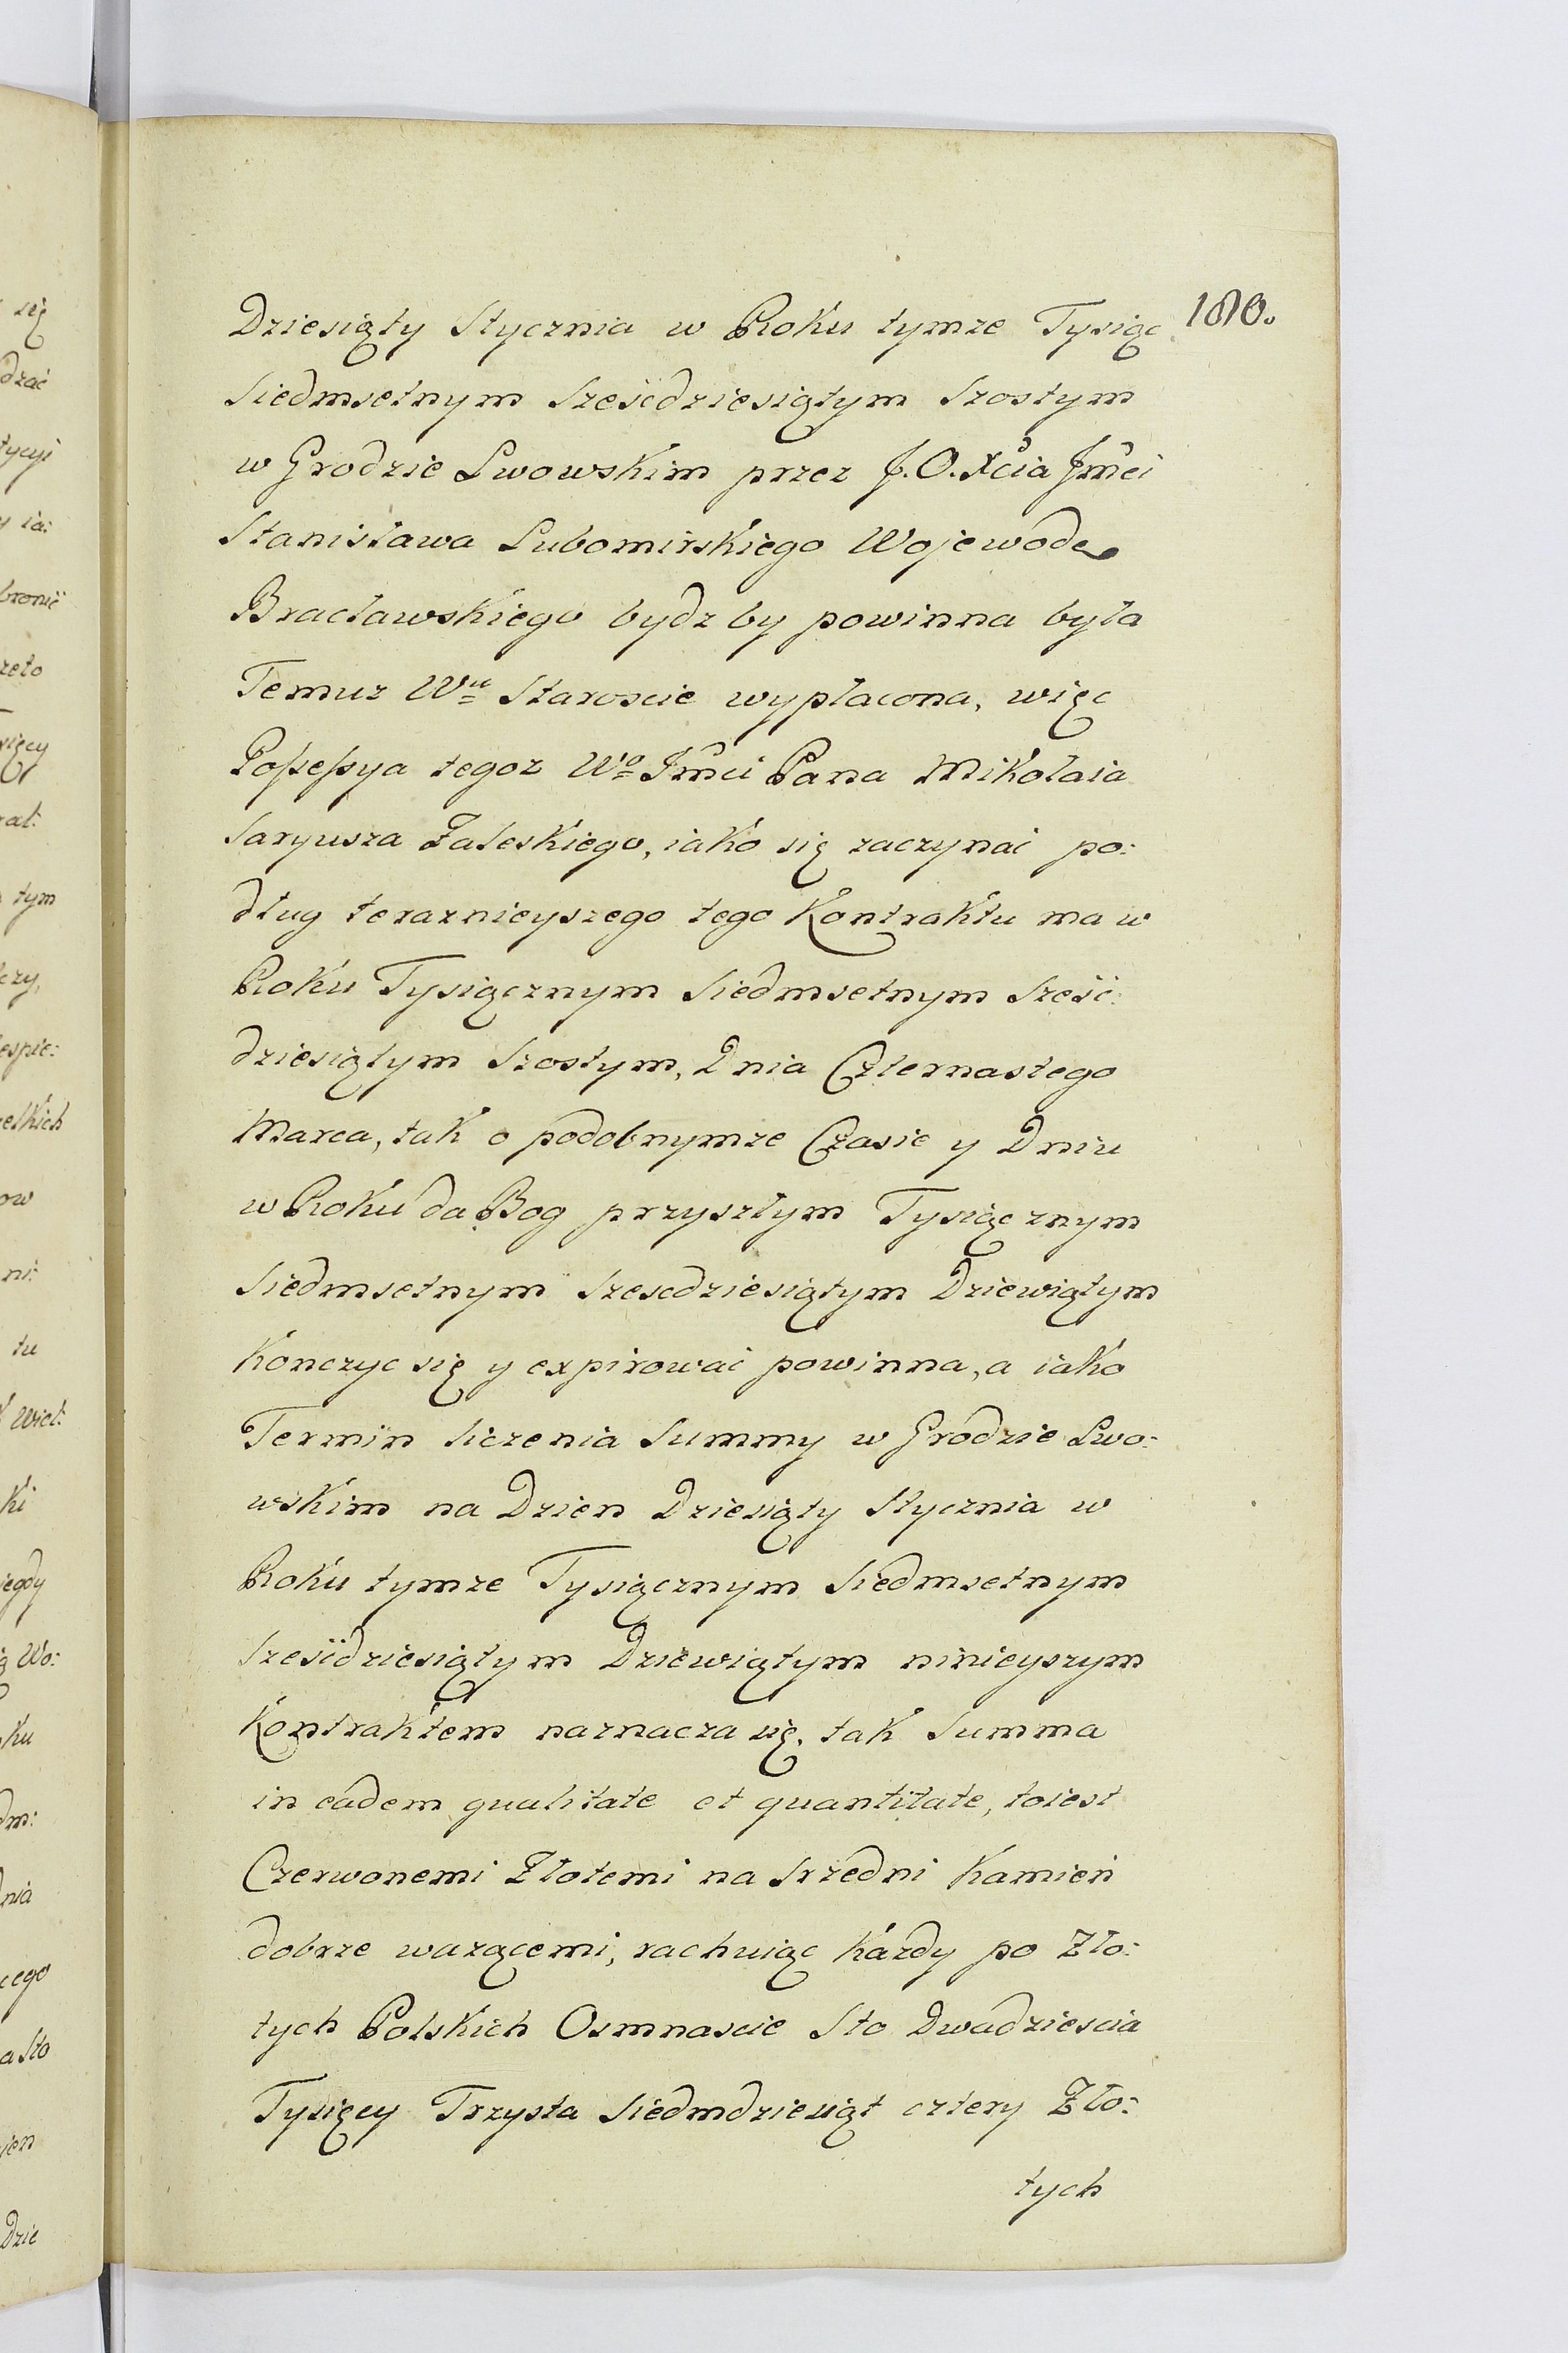 180.
Dziesiąty Stycznia w Roku tymze Tysiąc
Siedmsetnym Sześćdziesiątym Szostym
w Grodzie Lwowskim przez J.O. Xcia Jmci
Stanisława Lubomirskiego Wojewodę
Bracławskiego bydz by powinna była
Temuz Wu Staroscie wypłacona, więc
Possessya tegoz Wo Jmci Pana Mikołaia
Saryusza Zaleskiego, iako się zaczynać po:
dług teraznieyszego tego Kontraktu ma w
Roku Tysiącznym Siedmsetnym Sześć:
dziesiątym Szostym, Dnia Czternastego
Marca, tak o podobnymze Czasie y Dniu
w Roku da Bog przyszłym Tysiącznym
Siedmsetnym Szescdziesiątym Dziewiątym
Konczyc się y expirować powinna, a iako
Termin liczenia Summy w Grodzie Lwo:
wskim na Dzien Dziesiąty Stycznia w
Roku tymze Tysiącznym Siedmsetnym
Sześćdziesiątym Dziewiątym ninieyszym
Kontraktem naznacza się, tak Summa
in eadem qualitate et quantitate, toiest
Czerwonemi Złotemi na Srzedni Kamień
dobrze ważącemi, rachuiąc każdy po Zło:
tych Polskich Osmnascie Sto Dwadziescia
Tysięcy Trzysta Siedmdziesiąt cztery Zło:
tych